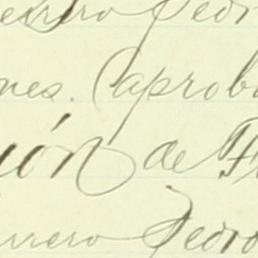 errero Pedro
nes. (aprob
ión de F
arrero Pedro